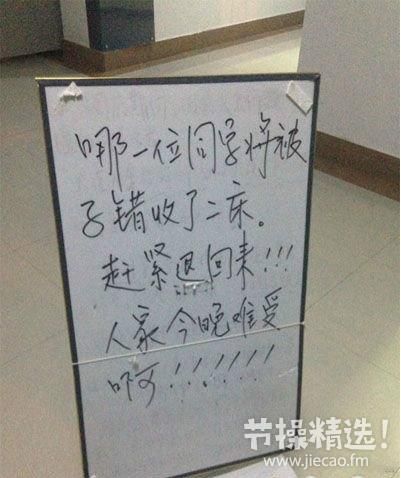 哪一位同学将被
子错收了二床。
赶紧退回来!!!
人家今晚难受
啊!!!!!!!
节操精选!
www.jiecao.fm